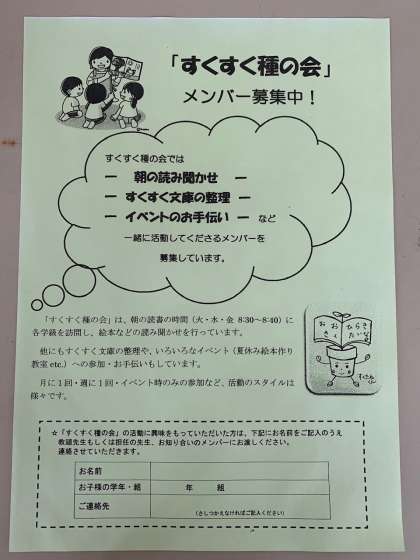 「すくすく種の会」
メンバー募集中！
すくすく種の会では
ー　朝の読み聞かせ　ー
ー　すくすく文庫の整理　ー
ー　イベントのお手伝い　ー　など
一緒に活動してくださるメンバーを
募集しています。
「すくすく種の会」は、朝の読書の時間（火・水・金 8:30～8:40）に
各学級を訪問し、絵本などの読み聞かせを行っています。
他にもすくすく文庫の整理や、いろいろなイベント（夏休み絵本作り
教室 etc.）への参加・お手伝いもしています。
月に１回・週に１回・イベント時のみの参加など、活動のスタイルは
様々です。
☆「すくすく種の会」の活動に興味をもっていただいた方は、下記にお名前をご記入のうえ
教頭先生もしくは担任の先生、お知り合いのメンバーにお渡しください。
連絡させていただきます。
お名前
お子様の学年・組　年　組
ご連絡先
（さしつかえなければご記入ください）